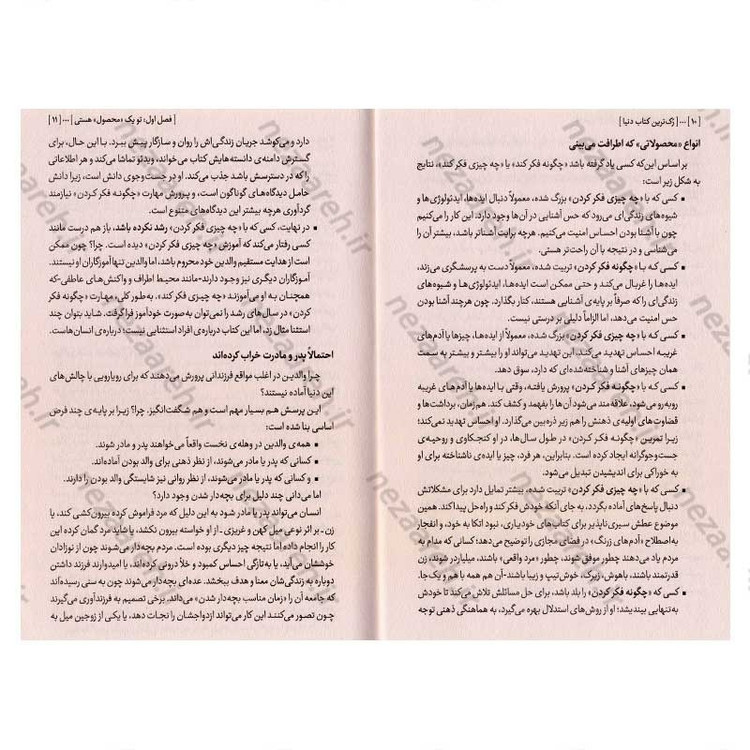 [ ۱۰ ] ... [ رُک‌ترین کتاب دنیا ]
انواع «محصولاتی» که اطرافت می‌بینی
بر اساس این‌که کسی یاد گرفته باشد «چگونه فکر کند» یا «چه چیزی فکر کند»، نتایج
به شکل زیر است:
▪ کسی که با «چه چیزی فکر کردن» بزرگ شده، معمولاً دنبال ایده‌ها، ایدئولوژی‌ها و
شیوه‌های زندگی‌ای می‌رود که حس آشنایی در آن‌ها وجود دارد؛ این کار را می‌کنیم
چون با آشنا بودن احساس امنیت می‌کنیم. هرچه برایت آشناتر باشد، بیشتر آن را
می‌شناسی و در نتیجه با آن راحت‌تر هستی.
▪ کسی که با «چگونه فکر کردن» تربیت شده، معمولاً دست به پرسشگری می‌زند،
ایده‌ها را غربال می‌کند و حتی ممکن است ایده‌ها، ایدئولوژی‌ها و شیوه‌های
زندگی‌ای را که صرفاً بر پایه‌ی آشنایی هستند، کنار بگذارد. چون هرچند آشنا بودن
حس امنیت می‌دهد، اما الزاماً دلیلی بر درستی نیست.
▪ کسی که با «چه چیزی فکر کردن» بزرگ شده، معمولاً از ایده‌ها، چیزها یا آدم‌های
غریبه احساس تهدید می‌کند. این تهدید می‌تواند او را بیشتر و بیشتر به سمت
همان چیزهای آشنا و شناخته‌شده‌ای که دارد، سوق دهد.
▪ کسی که با «چگونه فکر کردن» پرورش یافته، وقتی با ایده‌ها یا آدم‌های غریبه
روبه‌رو می‌شود، علاقه‌مند می‌شود آن‌ها را بفهمد و کشف کند. هم‌زمان، برداشت‌ها و
قضاوت‌های اولیه‌ی ذهنش را هم زیر ذره‌بین می‌گذارد. او احساس تهدید نمی‌کند؛
زیرا تمرین «چگونه فکر کردن» در طول سال‌ها، در او کنجکاوی و روحیه‌ی
جست‌وجوگرانه ایجاد کرده است. بنابراین، هر فرد، چیز یا ایده‌ی ناشناخته برای او
به خوراکی برای اندیشیدن تبدیل می‌شود.
▪ کسی که با «چه چیزی فکر کردن» تربیت شده، بیشتر تمایل دارد برای مشکلاتش
دنبال پاسخ‌های آماده بگردد، به جای آنکه خودش فکر کند و راه‌حل پیدا کند. همین
موضوع عطش سیری‌ناپذیر برای کتاب‌های خودیاری، نبود اتکا به خود، و انفجار
به‌اصطلاح «آدم‌های زرنگ» در فضای مجازی را توضیح می‌دهد؛ کسانی که مدام به
مردم یاد می‌دهند چطور موفق شوند، چطور «مرد واقعی» باشند، میلیاردر شوند، زن
قدرتمند باشند، باهوش، زیرک، خوش‌تیپ و زیبا باشند-آن هم همه با هم و یک‌جا.
▪ کسی که «چگونه فکر کردن» را بلد باشد، برای حل مسائلش تلاش می‌کند تا خودش
به‌تنهایی بیندیشد؛ او از روش‌های استدلال بهره می‌گیرد، به هماهنگی ذهنی توجه
[ فصل اول: تو یک «محصول» هستی ] ... [ ۱۱ ]
دارد و می‌کوشد جریان زندگی‌اش را روان و سازگار پیش ببرد. با این حال، برای
گسترش دامنه‌ی دانسته‌هایش کتاب می‌خواند، ویدئو تماشا می‌کند و هر اطلاعاتی
را که در دسترسش باشد جذب می‌کند. او در جست‌وجوی دانش است، زیرا دانش
حامل دیدگاه‌های گوناگون است، و پرورش مهارت «چگونه فکر کردن» نیازمند
گردآوری هرچه بیشتر این دیدگاه‌های متنوع است.
▪ در نهایت، کسی که با «چه چیزی فکر کردن» رشد نکرده باشد، باز هم درست مانند
کسی رفتار می‌کند که آموزش «چه چیزی فکر کردن» دیده است. چرا؟ چون ممکن
است از هدایت مستقیم والدین خود محروم باشد، اما والدین تنها آموزگاران او نیستند.
آموزگاران دیگری نیز وجود دارند-مانند محیط اطراف و واکنش‌های عاطفی-که
همچنان به او می‌آموزند «چه چیزی فکر کند». به‌طور کلی، مهارت «چگونه فکر
کردن» در سال‌های رشد را نمی‌توان به‌صورت خودآموز فرا گرفت. شاید بتوان چند
استثنا مثال زد، اما این کتاب درباره‌ی افراد استثنایی نیست؛ درباره‌ی انسان‌هاست.
احتمالاً پدر و مادرت خراب کرده‌اند
چرا والدین در اغلب مواقع فرزندانی پرورش می‌دهند که برای رویارویی با چالش‌های
این دنیا آماده نیستند؟
این پرسش هم بسیار مهم است و هم شگفت‌انگیز. چرا؟ زیرا بر پایه‌ی چند فرض
اساسی بنا شده است:
▪ همه‌ی والدین در وهله‌ی نخست واقعاً می‌خواهند پدر و مادر شوند.
▪ کسانی که پدر یا مادر می‌شوند، از نظر ذهنی برای والد بودن آماده‌اند.
▪ و کسانی که پدر یا مادر می‌شوند، از نظر روانی نیز شایستگی والد بودن را دارند.
اما می‌دانی چند دلیل برای بچه‌دار شدن وجود دارد؟
انسان می‌تواند پدر یا مادر شود به این دلیل که مرد فراموش کرده بیرون کشی کند، یا
زن-بر اثر نوعی میل کهن و غریزی-از او خواسته بیرون نکشد، یا شاید مرد گمان کرده
کار را انجام داده اما نتیجه چیز دیگری بوده است. مردم بچه‌دار می‌شوند چون از نوزادان
خوششان می‌آید، یا به‌تازگی احساس کمبود و خلأ درونی کرده‌اند، یا امیدوارند فرزند داشتن
دوباره به زندگی‌شان معنا و هدف ببخشد. عده‌ای بچه‌دار می‌شوند چون به سنی رسیده‌اند
که جامعه آن را «زمان مناسب بچه‌دار شدن» می‌داند. برخی تصمیم به فرزندآوری می‌گیرند
چون تصور می‌کنند این کار می‌تواند ازدواجشان را نجات دهد، یا یکی از زوجین میل به
nezaareh.ir